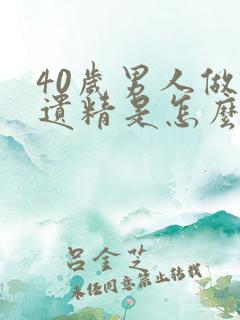 40岁男人做
遗精是怎么
吕金芝
未经同意禁止转载